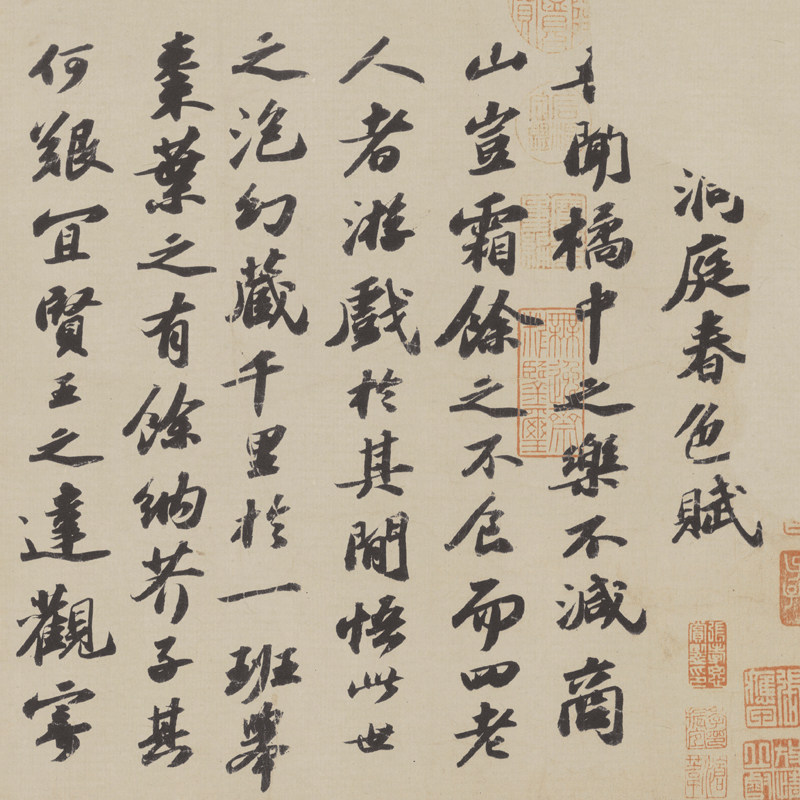 洞庭春色賦
聞橘中之樂不減商
山豈霜餘之不食而四老
人者游戲於其閒悟此世
之泡幻藏千里於一班舉
棗葉之有餘納芥子其
何艱宜賢王之達觀寄